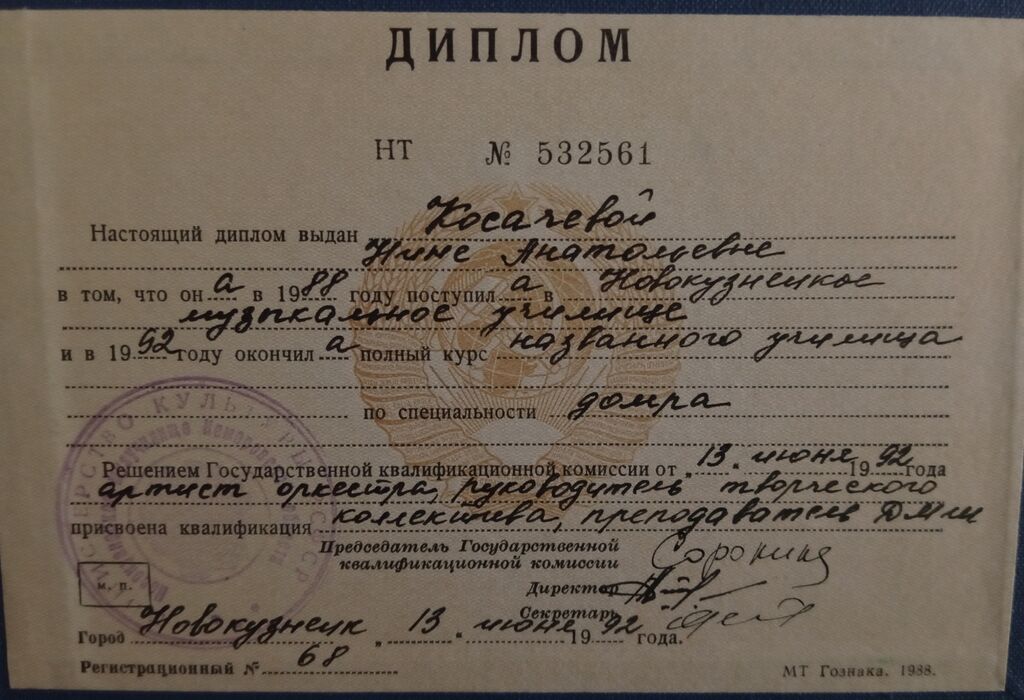 ДИПЛОМ
НТ № 532561
Настоящий диплом выдан Косачевой
Нине Анатольевне
в том, что он а в 1988 году поступил а в Новокузнецкое
музыкальное училище
и в 1992 году окончил а полный курс названного училища
по специальности домра
Решением Государственной квалификационной комиссии от „ 13 " июня 1992 года
артист оркестра, руководитель творческого
присвоена квалификация коллектива, преподаватель ДМШ
Председатель Государственной
квалификационной комиссии Сорокина
Директор
Секретарь
м. п.
Город Новокузнецк „ 13 " июня 1992 года.
Регистрационный № 68
МТ Гознака. 1988.